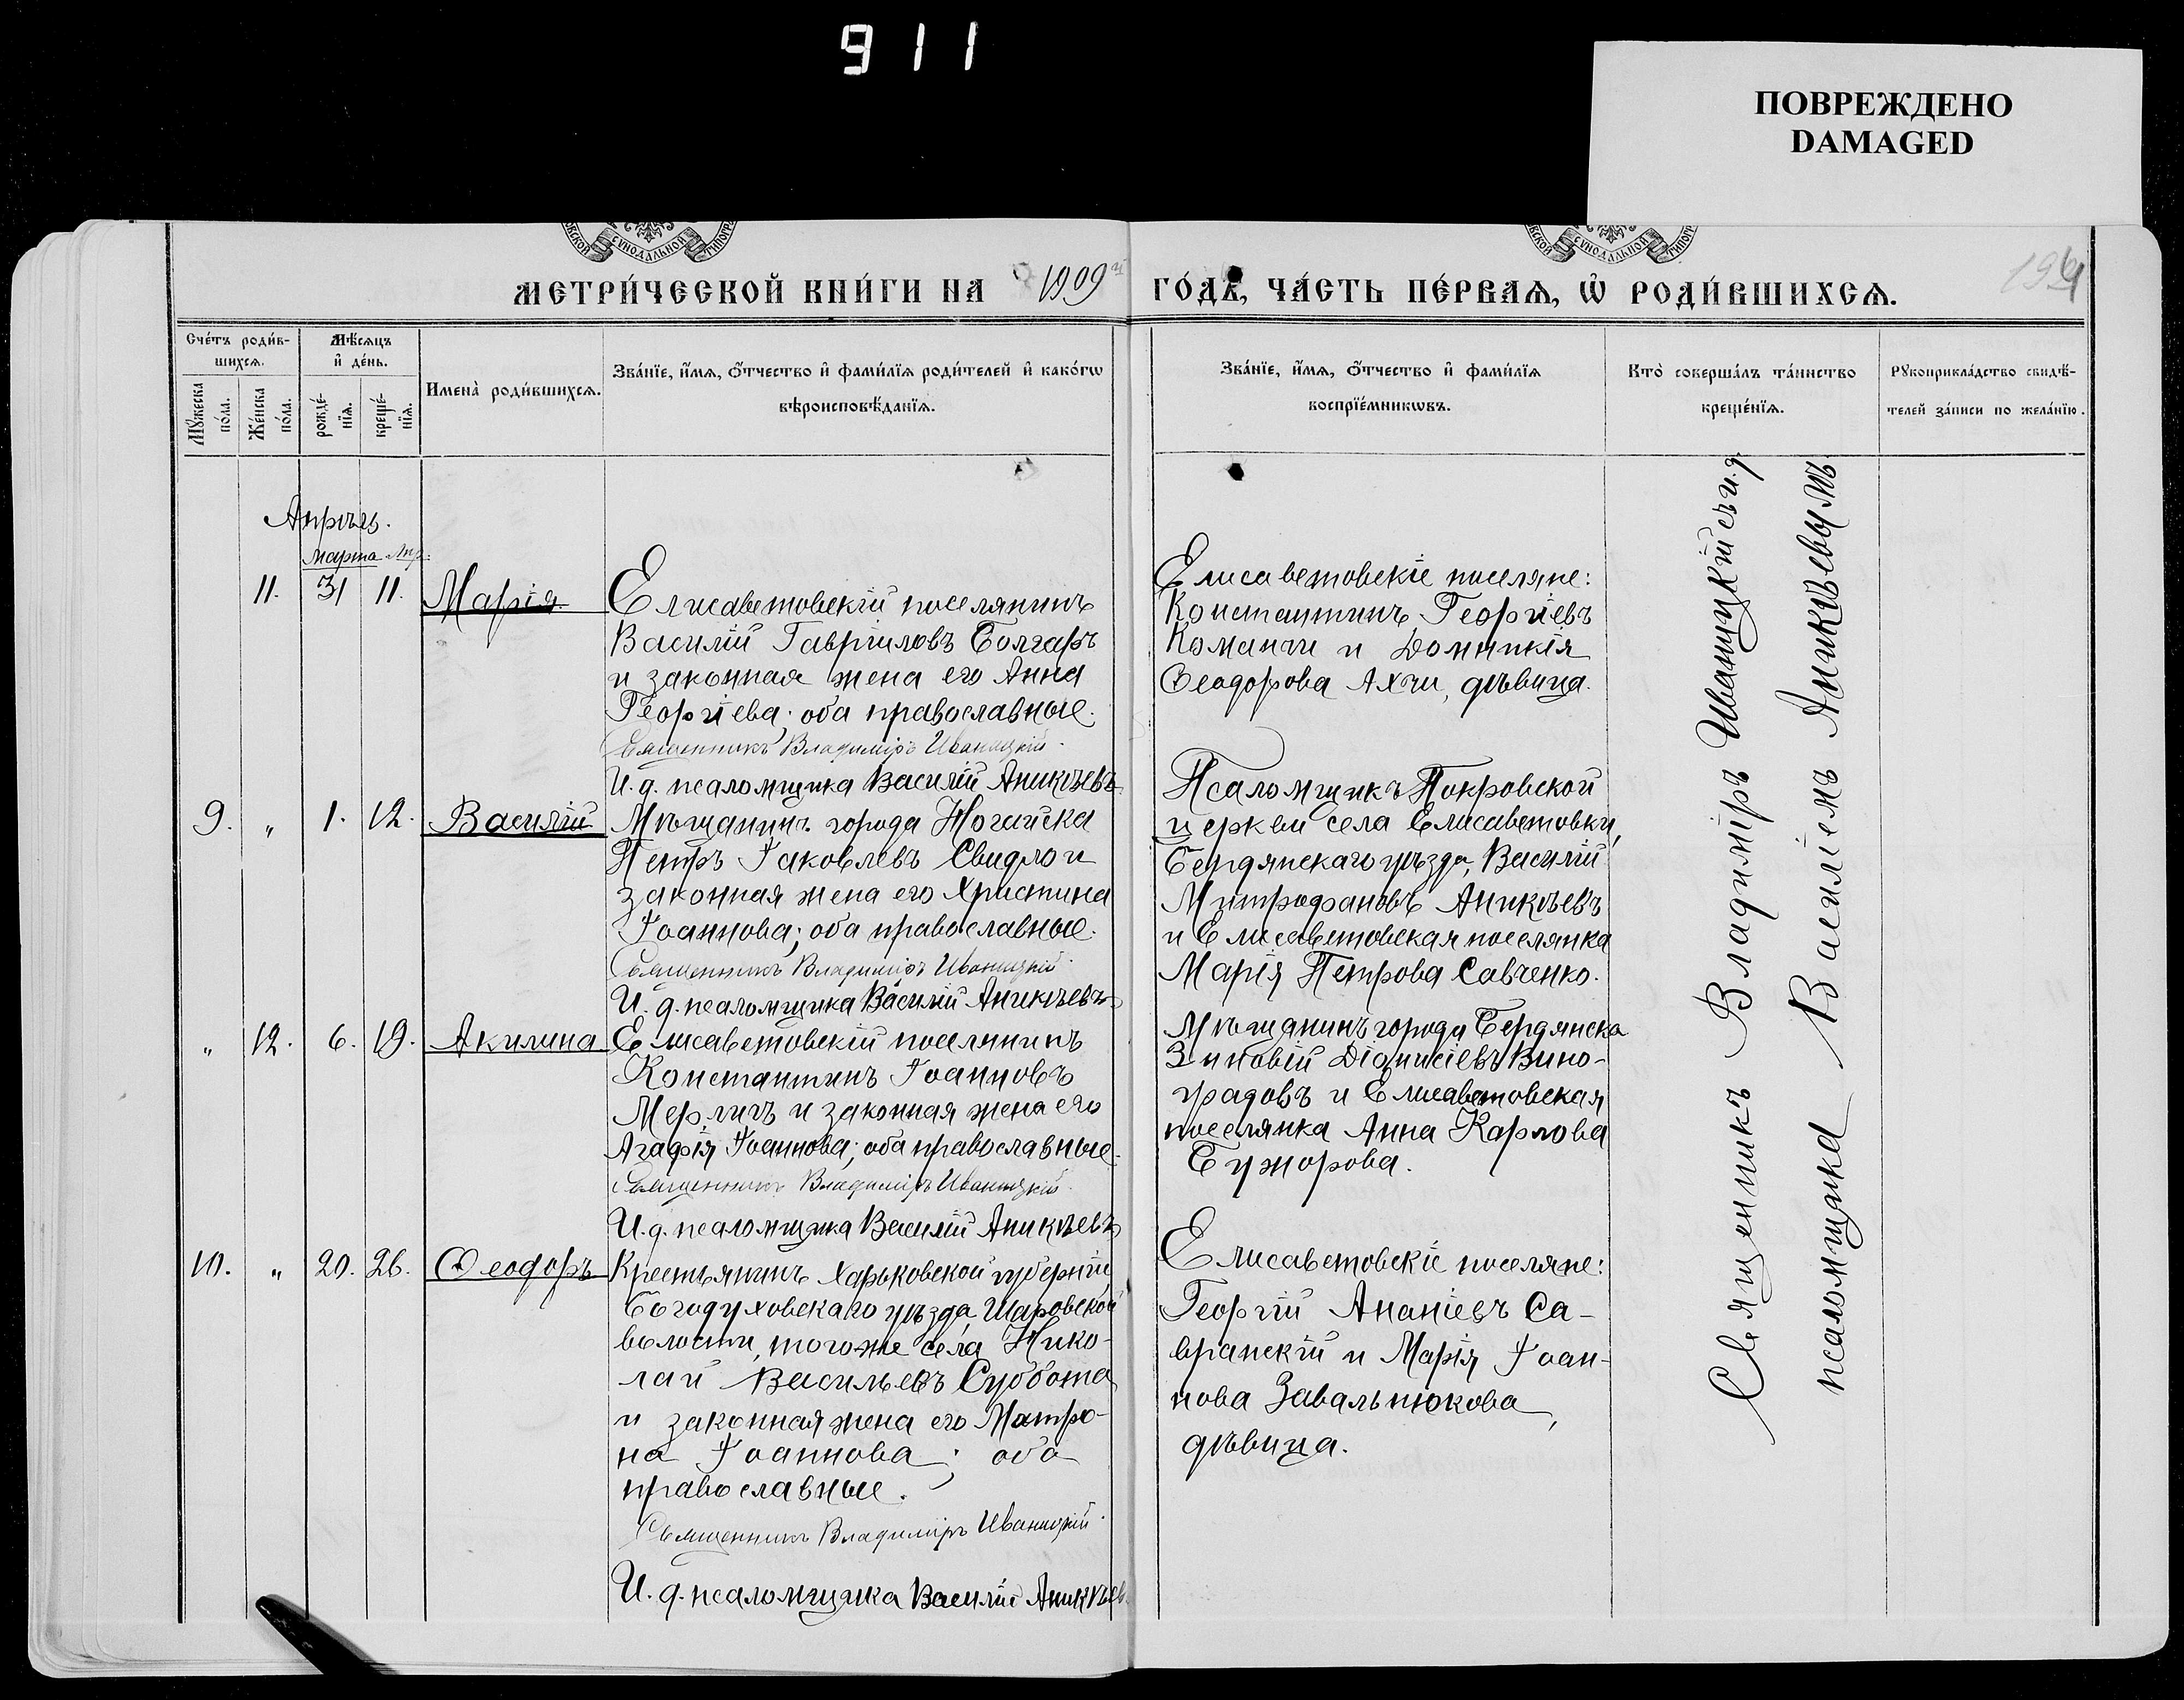 911
ПОВРЕЖДЕНО
DAMAGED
СѴНОДАЛЬНОЙ
СѴНОДАЛЬНОЙ
МЕТРИ́ЧЕСКОЙ КНИ́ГИ НА 1909й
ГО́ДЪ, ЧА́СТЬ ПЕ́РВАѦ, Ѡ҆ РОДИ́ВШИХСѦ.
Сче́тъ роди́в-
шихсѧ.
Мꙋ́жеска
по́ла.
Же́нска
по́ла.
Мѣ́сѧцъ
и҆ де́нь.
рожде́-
нїѧ.
креще́-
нїѧ.
Имена̀ роди́вшихсѧ.
Зва́нїе, и҆́мѧ, ѻ҆́тчество и҆ фами́лїѧ роди́телей и҆ како́гѡ
вѣроисповѣ́данїѧ.
Зва́нїе, и҆́мѧ, ѻ҆́тчество и҆ фами́лїѧ
воспрїе́мникѡвъ.
Кто̀ соверша́лъ та́инство
креще́нїѧ.
Рꙋкоприкла́дство свидѣ́-
телей за́писи по жела́нїю.
Апрѣль.
Марта Апр.
11. 31 11. Марія.
Елисаветовскій поселянинъ
Василій Гавріиловъ Болгаръ
и законная жена его Анна
Георгіева; оба православные.
Священникъ Владиміръ Иваницкій.
И. д. псаломщика Василій Аникѣевъ
Елисаветовскіе поселяне:
Константинъ Георгіевъ
Команчи и Домникія
Ѳеодорова Ахчи, дѣвица.
9. „ 1. 12. Василій
Мѣщанинъ города Ногайска
Петръ Іаковлевъ Свидло и
законная жена его Христина
Іоаннова; оба православные.
Священникъ Владиміръ Иваницкій.
И. д. псаломщика Василій Аникѣевъ
Псаломщикъ Покровской
церкви села Елисаветовки,
Бердянскаго уѣзда, Василій
Митрофановъ Аникѣевъ
и Елисаветовская поселянка
Марія Петрова Савченко.
„ 12. 6. 19. Акилина
Елисаветовскій поселянинъ
Константинъ Іоанновъ
Мерличъ и законная жена его
Агафія Іоаннова; оба православные.
Священникъ Владиміръ Иваницкій.
И. д. псаломщика Василій Аникѣевъ
Мѣщанинъ города Бердянска
Зиновій Діонисіевъ Вино-
градовъ и Елисаветовская
поселянка Анна Карлова
Бужорова.
10. „ 20. 26. Ѳеодоръ
Крестьянинъ Харьковской губерніи,
Богодуховскаго уѣзда, Шаровской
волости, того же села Нико-
лай Васильевъ Суббота
и законная жена его Матро-
на Іоаннова; оба
православные.
Священникъ Владиміръ Иваницкій.
И. д. псаломщика Василій Аникѣев
Елисаветовскіе поселяне:
Георгій Ананіевъ Са-
вранскій и Марія Іоан-
нова Завальнюкова,
дѣвица.
Священникъ Владиміръ Иваницкій съ и. д.
псаломщика Василіемъ Аникѣевымъ